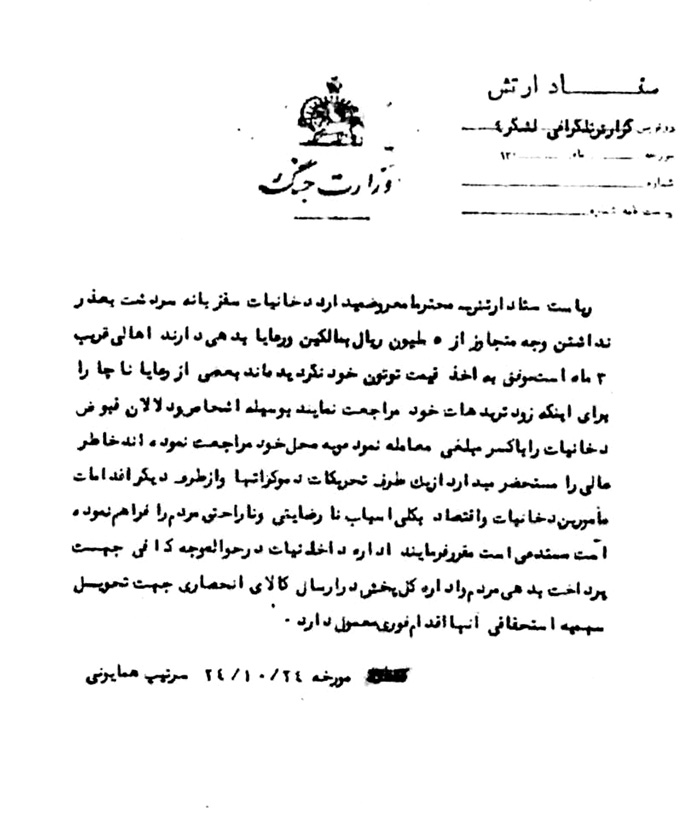 ستاد ارتش
گزارش تلگرافی لشگر ٤
مورخه ماه ۱۳۰
شماره
پیوست نامه شماره
وزارت جنگ
ریاست ستاد ارتش محترما معروضمیدارد دخانیات سقز بانه سردشت بعذر
نداشتن وجه متجاوز از ٥ ملیون ریال بمالکین ورعایا بدهی دارند اهالی قریب
۳ ماه است موفق به اخذ قیمت توتون خود نگردیده‌اند بعضی از رعایا ناچارا
برای اینکه زودتر بدهات خود مراجعت نمایند بوسیله اشخاص ودلالان قبوض
دخانیات را باکسر مبلغی معامله نموده وبه محل خود مراجعت نموده اند خاطر
عالی را مستحضر میدارد از یک طرف تحریکات دموکراتها وازطرف دیگر اقدامات
مأمورین دخانیات واقتصاد بکلی اسباب نا رضایتی وناراحتی مردم را فراهم نموده
است مستدعی است مقرر فرمایند اداره دخانیات در حواله وجه کافی جهت
پرداخت بدهی مردم واداره کل پخش در ارسال کالای انحصاری جهت تحویل
سهمیه استحقاقی آنها اقدام فوری معمول دارد .
مورخه ٢٤/١٠/٢٤ سرتیپ همایونی